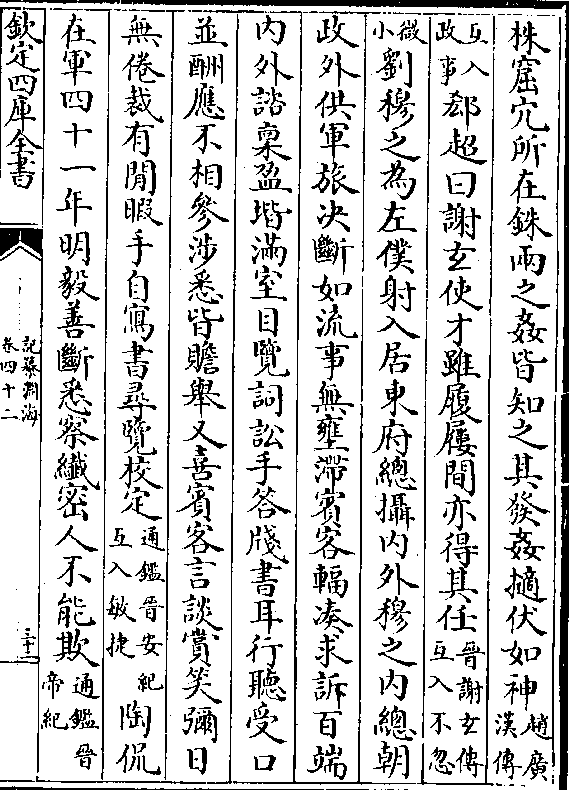 株窟穴所在銖兩之姦皆知之其發姦擿伏如神趙廣漢傳
互入政事郄超曰謝玄使才雖履屐間亦得其任晉謝玄傳互入不忽
微小劉穆之為左僕射入居東府總攝内外穆之内總朝
政外供軍旅决斷如流事無壅滯賓客輻凑求訴百端
内外諮稟盈堦滿室目覽詞訟手答牋書耳行聽受口
並酬應不相參涉悉皆贍舉又喜賓客言談賞笑彌日
無倦裁有閒暇手自寫書尋覽校定通鑑晉安紀互入敏捷陶侃
在軍四十一年明毅善斷悉察纎密人不能欺通鑑晉帝紀
欽定四庫全書
記纂淵海
卷四十二
三十一